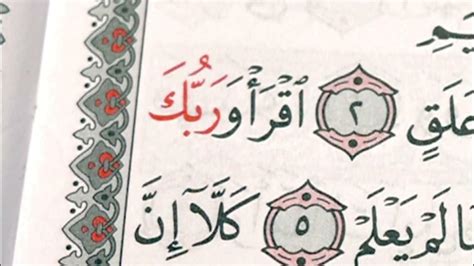 ـيمِ
عَلَقٍ ٢ ٱقۡرَأۡ وَرَبُّكَ
مَا لَمۡ يَعۡلَمۡ ٥ كَلَّآ إِنَّ